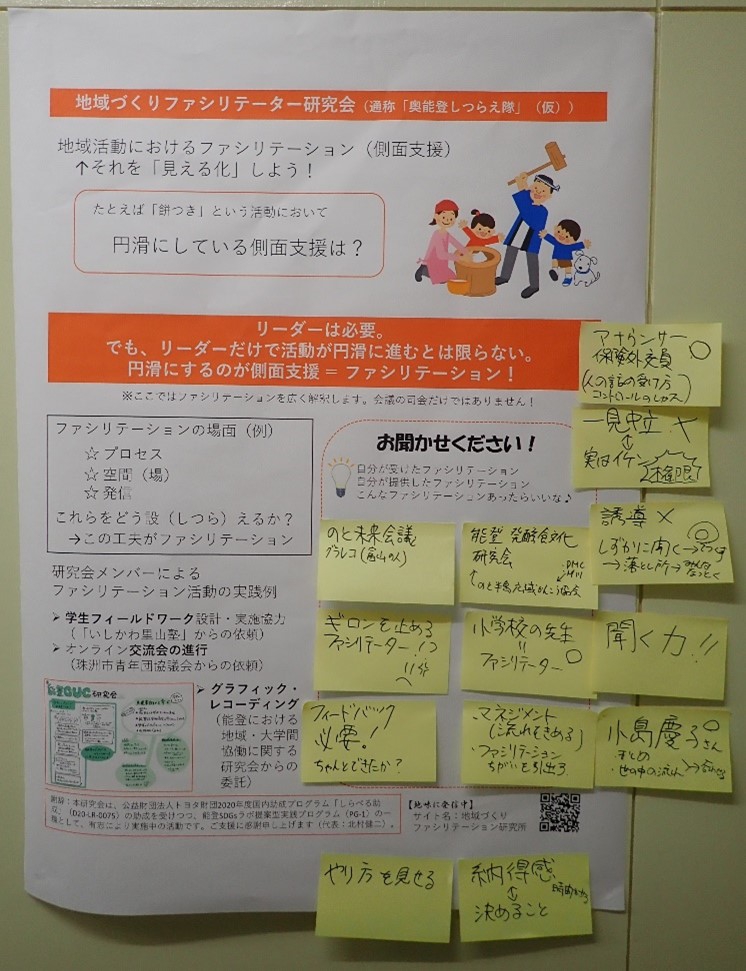 地域づくりファシリテーター研究会（通称「奥能登しつらえ隊」（仮））
地域活動におけるファシリテーション（側面支援）
↑それを「見える化」しよう！
たとえば「餅つき」という活動において
円滑にしている側面支援は？
リーダーは必要。
でも、リーダーだけで活動が円滑に進むとは限らない。
円滑にするのが側面支援 = ファシリテーション！
※ここではファシリテーションを広く解釈します。会議の司会だけではありません！
ファシリテーションの場面（例）
☆ プロセス
☆ 空間（場）
☆ 発信
これらをどう設（しつら）えるか？
→この工夫がファシリテーション
研究会メンバーによる
ファシリテーション活動の実践例
➢ 学生フィールドワーク設計・実施協力
（「いしかわ里山塾」からの依頼）
➢ オンライン交流会の進行
（珠洲市青年団協議会からの依頼）
➢ グラフィック・
レコーディング
（能登における
地域・大学間
協働に関する
研究会からの
委託）
お聞かせください！
自分が受けたファシリテーション
自分が提供したファシリテーション
こんなファシリテーションあったらいいな♪
アナウンサー
保険外交員
コントロール
一見中立 ×
↕
実はイケン
誘導 ×
しずかに聞く→
→落とし所→みんな
なっとく
のと未来会議
グラレコ
能登 発酵食文化
研究会
DMC
ギロンを止める
ファシリテーター！？
小学校の先生
=
ファシリテーター
聞く力!!
フィードバック
必要！
ちゃんとできたか？
マネジメント
（流れをきめる）
・ファシリテーション
ちがいを引出す
小島慶子さん
・まとめ
・世の中の流れ
やり方を見せる
納得感
↕
決めること
謝辞：本研究会は、公益財団法人トヨタ財団2020年度国内助成プログラム「しらべる助
成」（D20-LR-0075）の助成を受けつつ、能登SDGsラボ提案型実践プログラム（PG-1）の一
環として、有志により実施中の活動です。ご支援に感謝申し上げます（代表：北村健二）。
【地味に発信中】
サイト名：地域づくり
ファシリテーション研究所